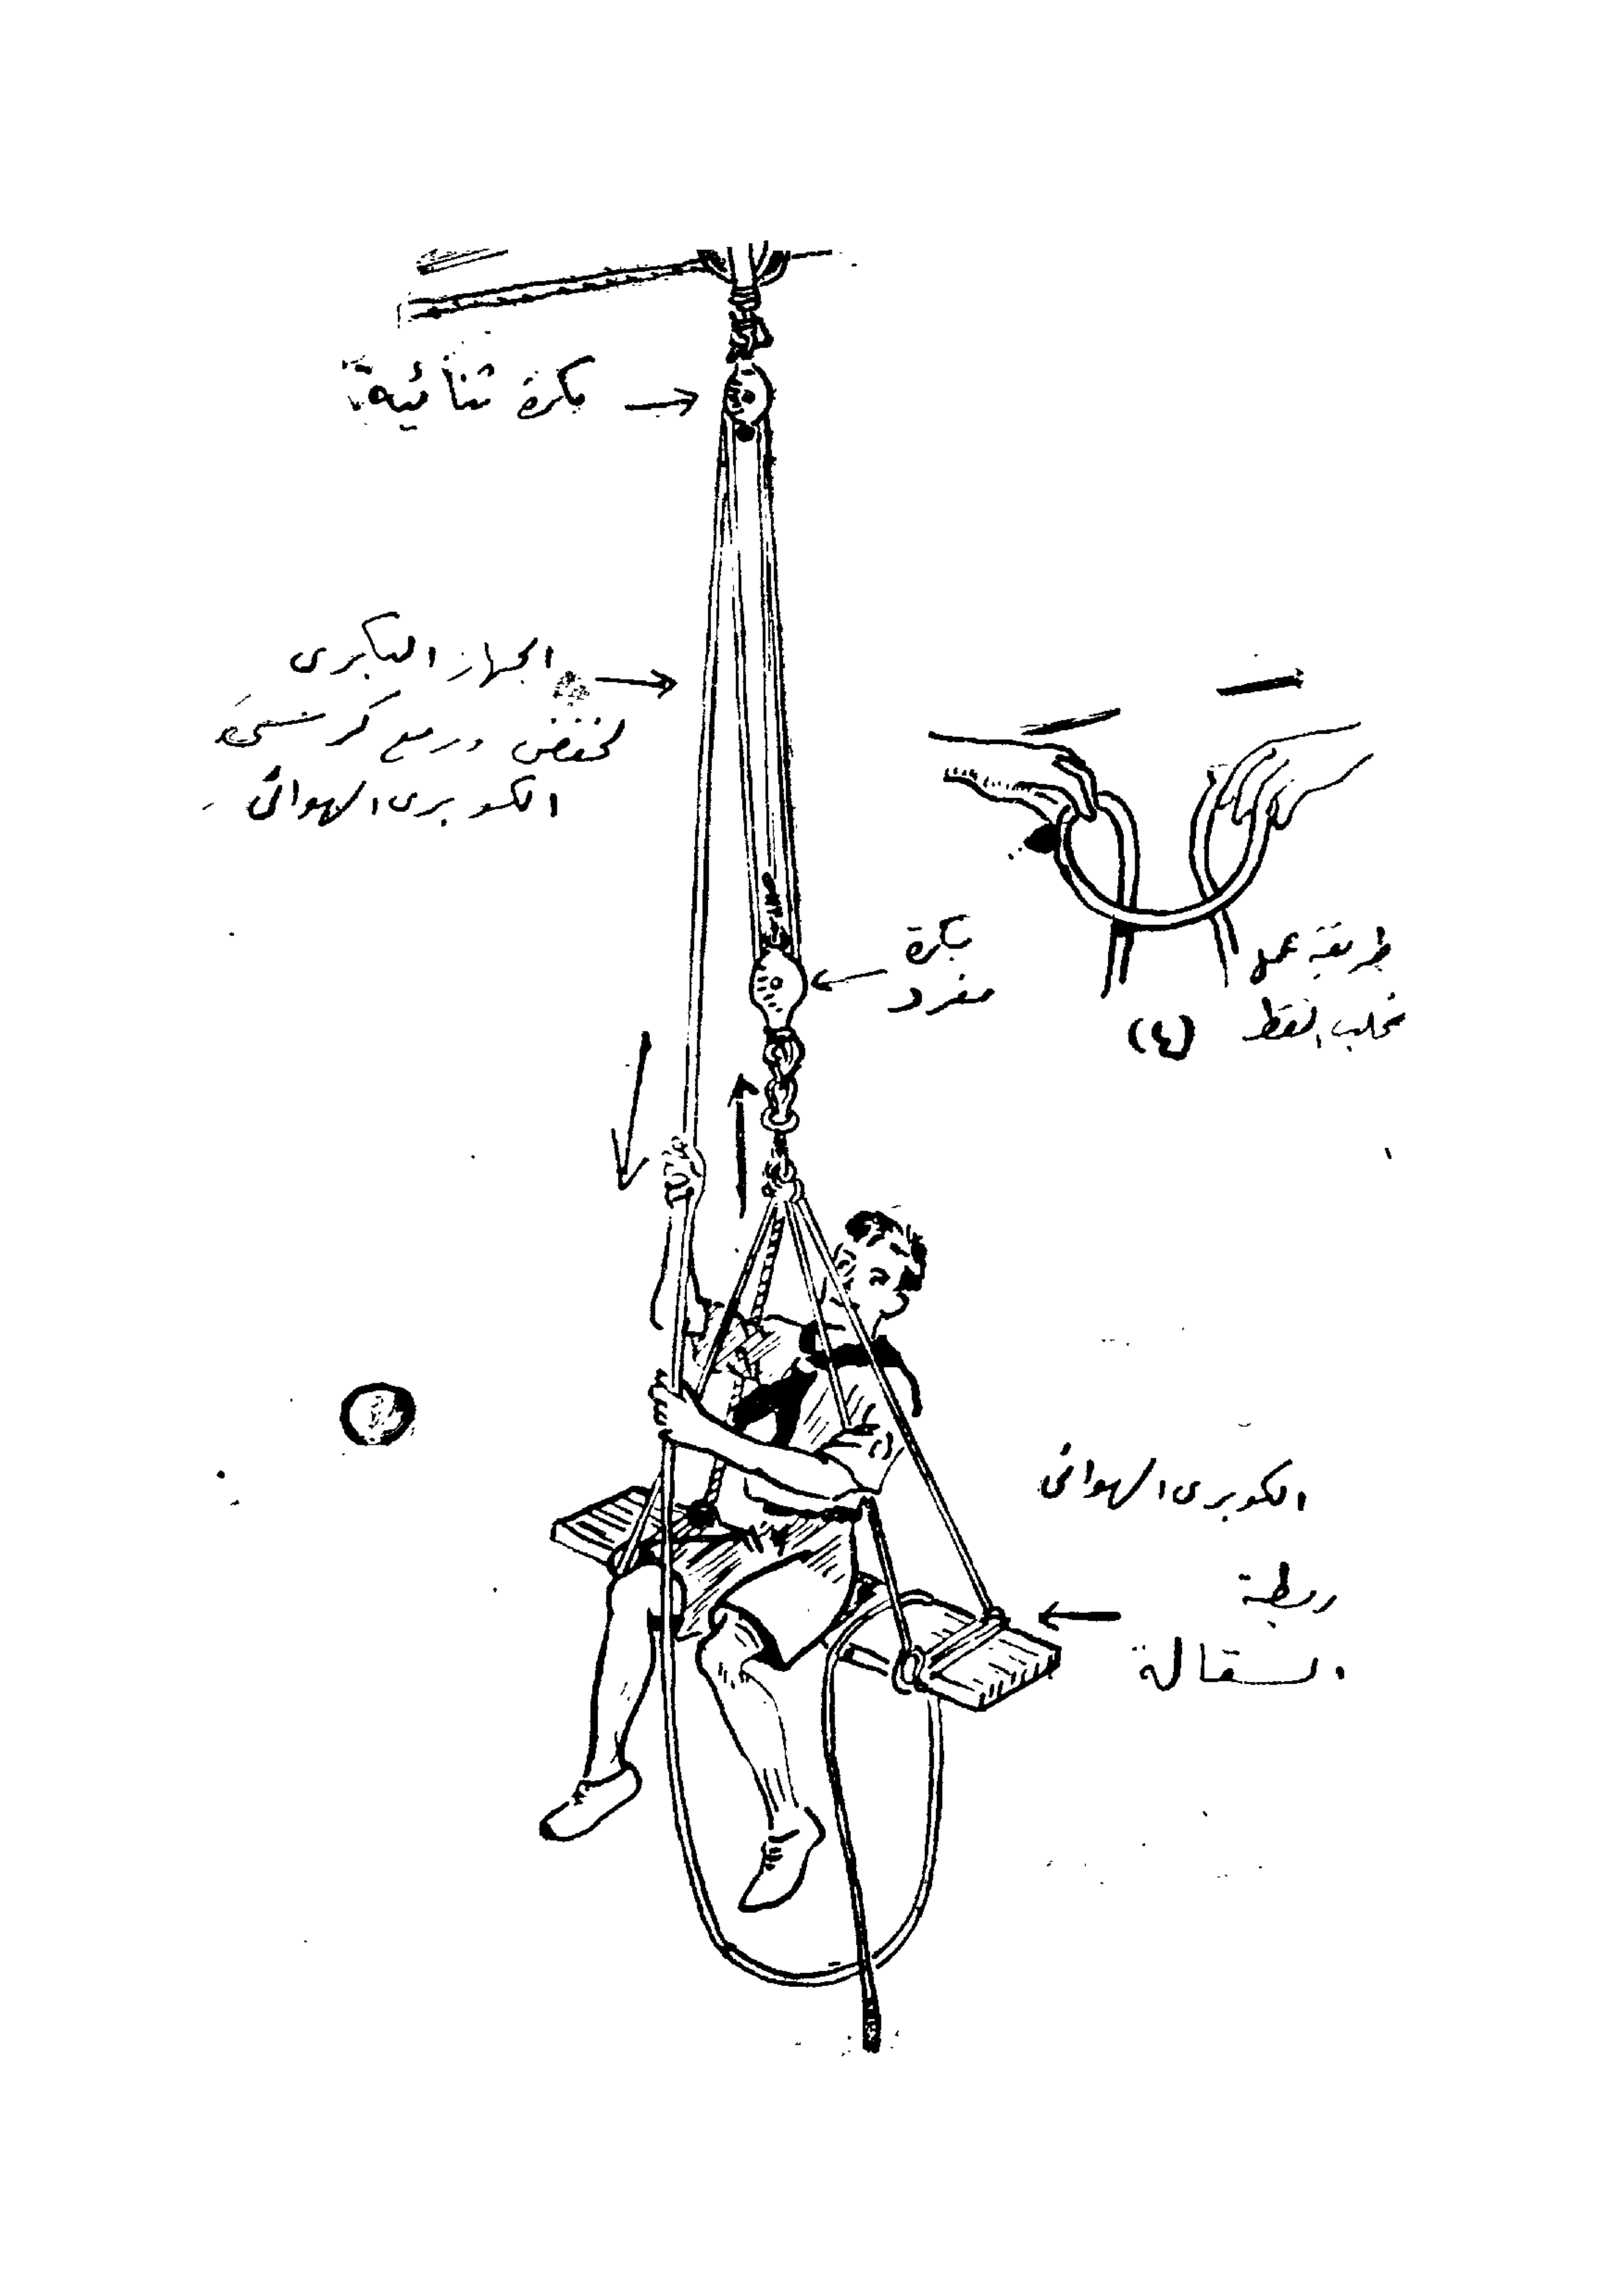 بكرة ثنائية
الجهاز البكرى
لخفض ورفع كرسى
الكوبرى الهوائى
بكرة
مفرد
طريقة عمل
مخلب القط (٤)
الكوبرى الهوائى
ربطة
السقالة